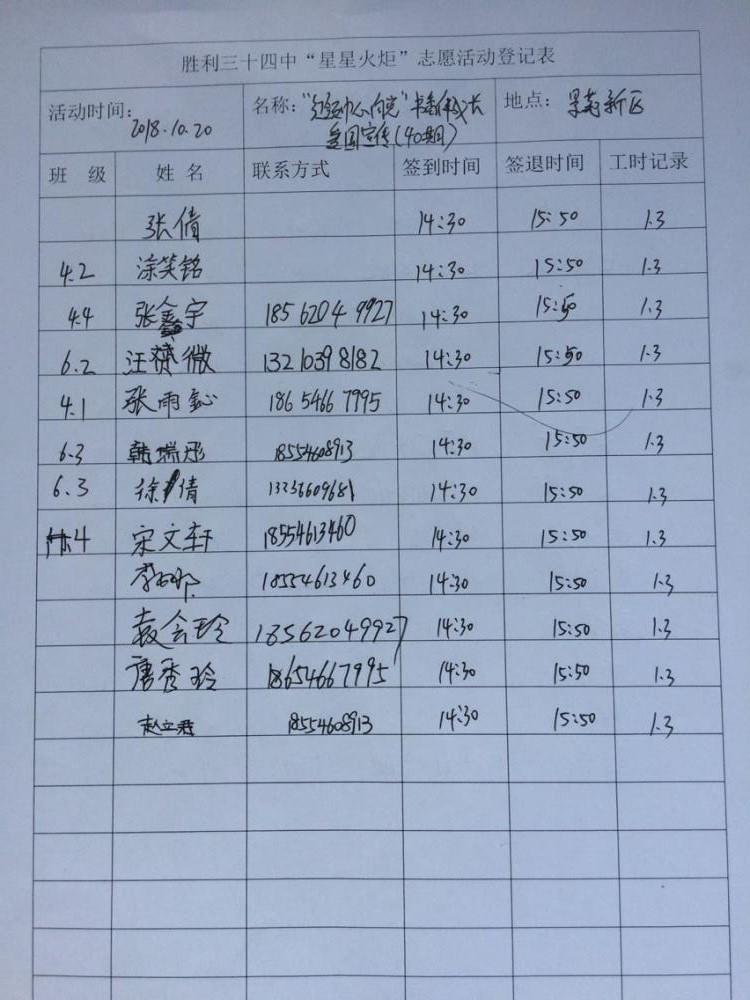 胜利三十四中“星星火炬”志愿活动登记表
活动时间: 2018.10.20 名称: 成长 地点: 新区
爱国宣传(40期)
班 级 姓 名 联系方式 签到时间 签退时间 工时记录
张倩 14:30 15:50 1.3
4.2 涂笑铭 14:30 15:50 1.3
4.4 张鑫宇 18562049927 14:30 15:50 1.3
6.2 汪赞微 13210398182 14:30 15:50 1.3
4.1 张雨鈊 18654667995 14:30 15:50 1.3
6.3 韩瑞彤 18554608913 14:30 15:50 1.3
6.3 徐倩 14:30 15:50 1.3
4 宋文轩 18554613460 14:30 15:50 1.3
18554613460 14:30 15:50 1.3
袁会玲 18562049927 14:30 15:50 1.3
唐秀玲 18654667995 14:30 15:50 1.3
赵立君 18554608913 14:30 15:50 1.3